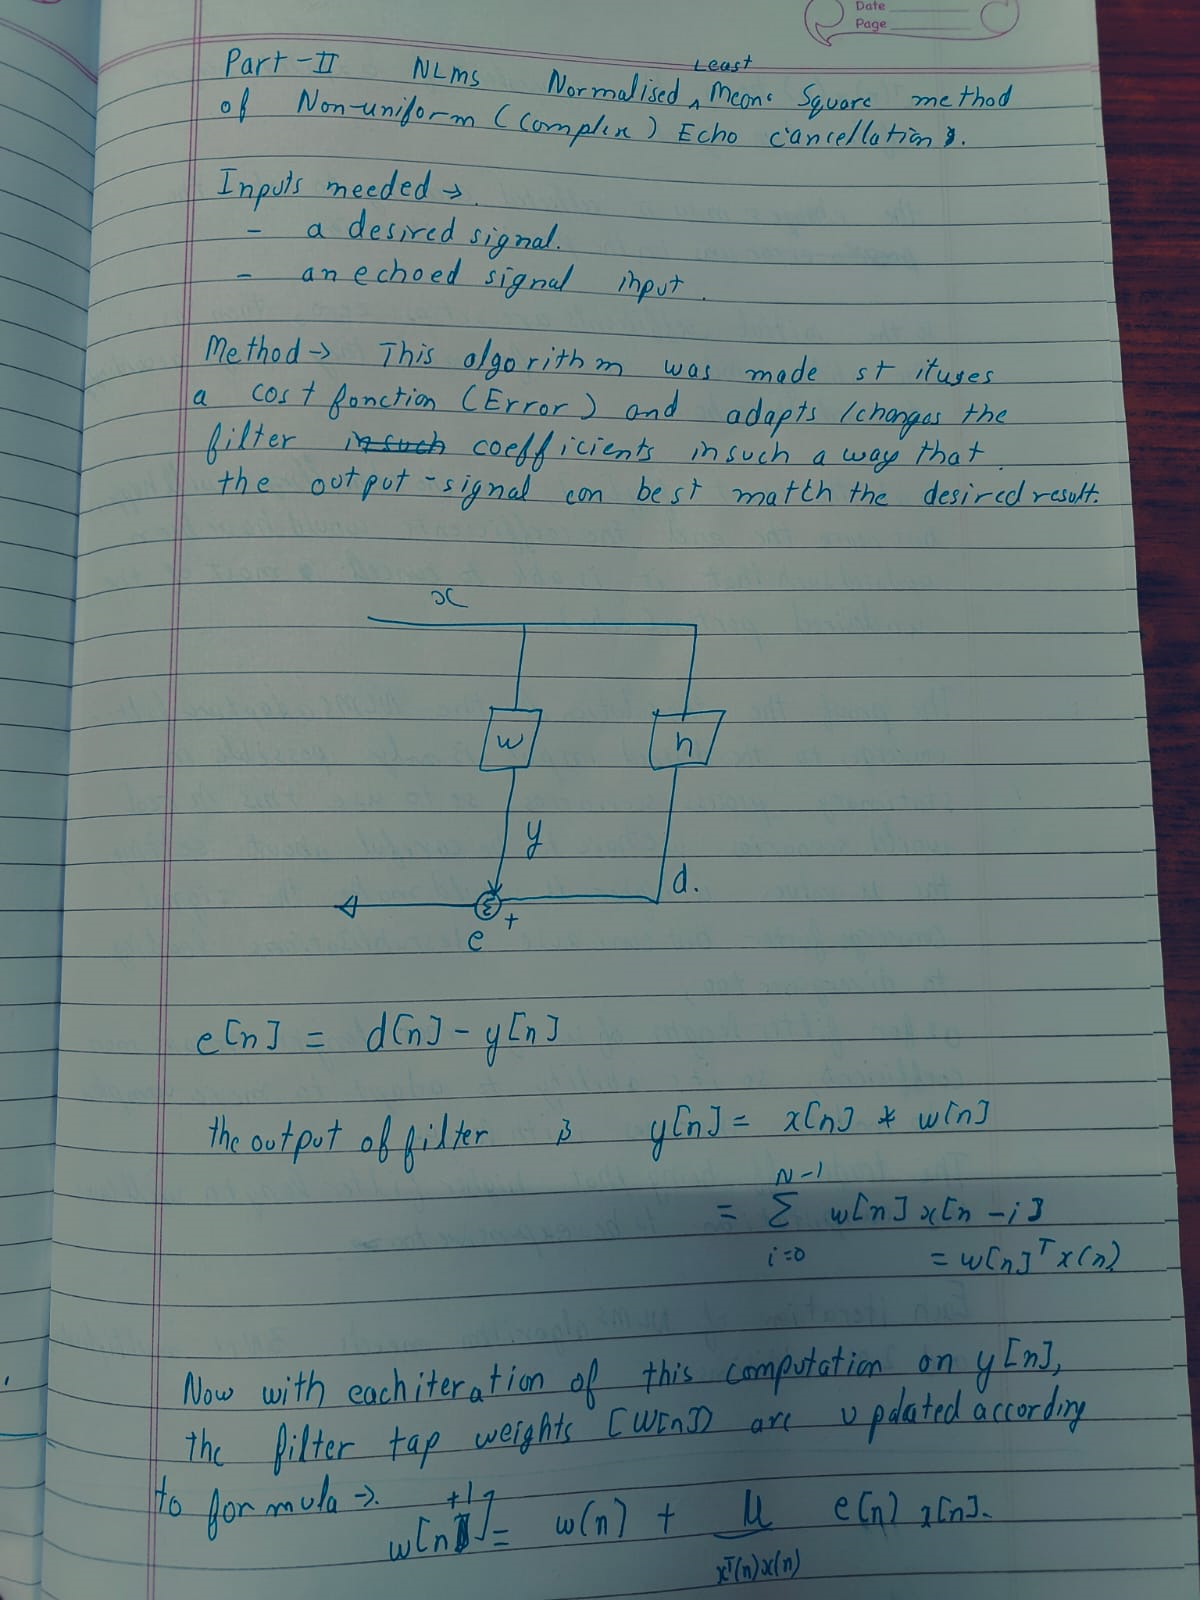 Date
Page
Part-II NLMS Normalised Least Means Square method
of Non-uniform (Complex) Echo cancellation.
Inputs needed →
- a desired signal.
- an echoed signal input.
Method → This algorithm was made st it uses
a cost fonction (Error) and adapts / changes the
filter insuch coefficients in such a way that
the output-signal can best match the desired result.
x
w h
y
d.
e +
e[n] = d[n] - y[n]
the output of filter is y[n] = x[n] * w[n]
N-1
= Σ w[n] x[n-i]
i=0 = w[n]ᵀ x(n)
Now with each iteration of this computation on y[n],
the filter tap weights [w[n]] are updated according
to formula →.
w[n+1] = w(n) + μ e[n] x[n].
xᵀ(n)x(n)